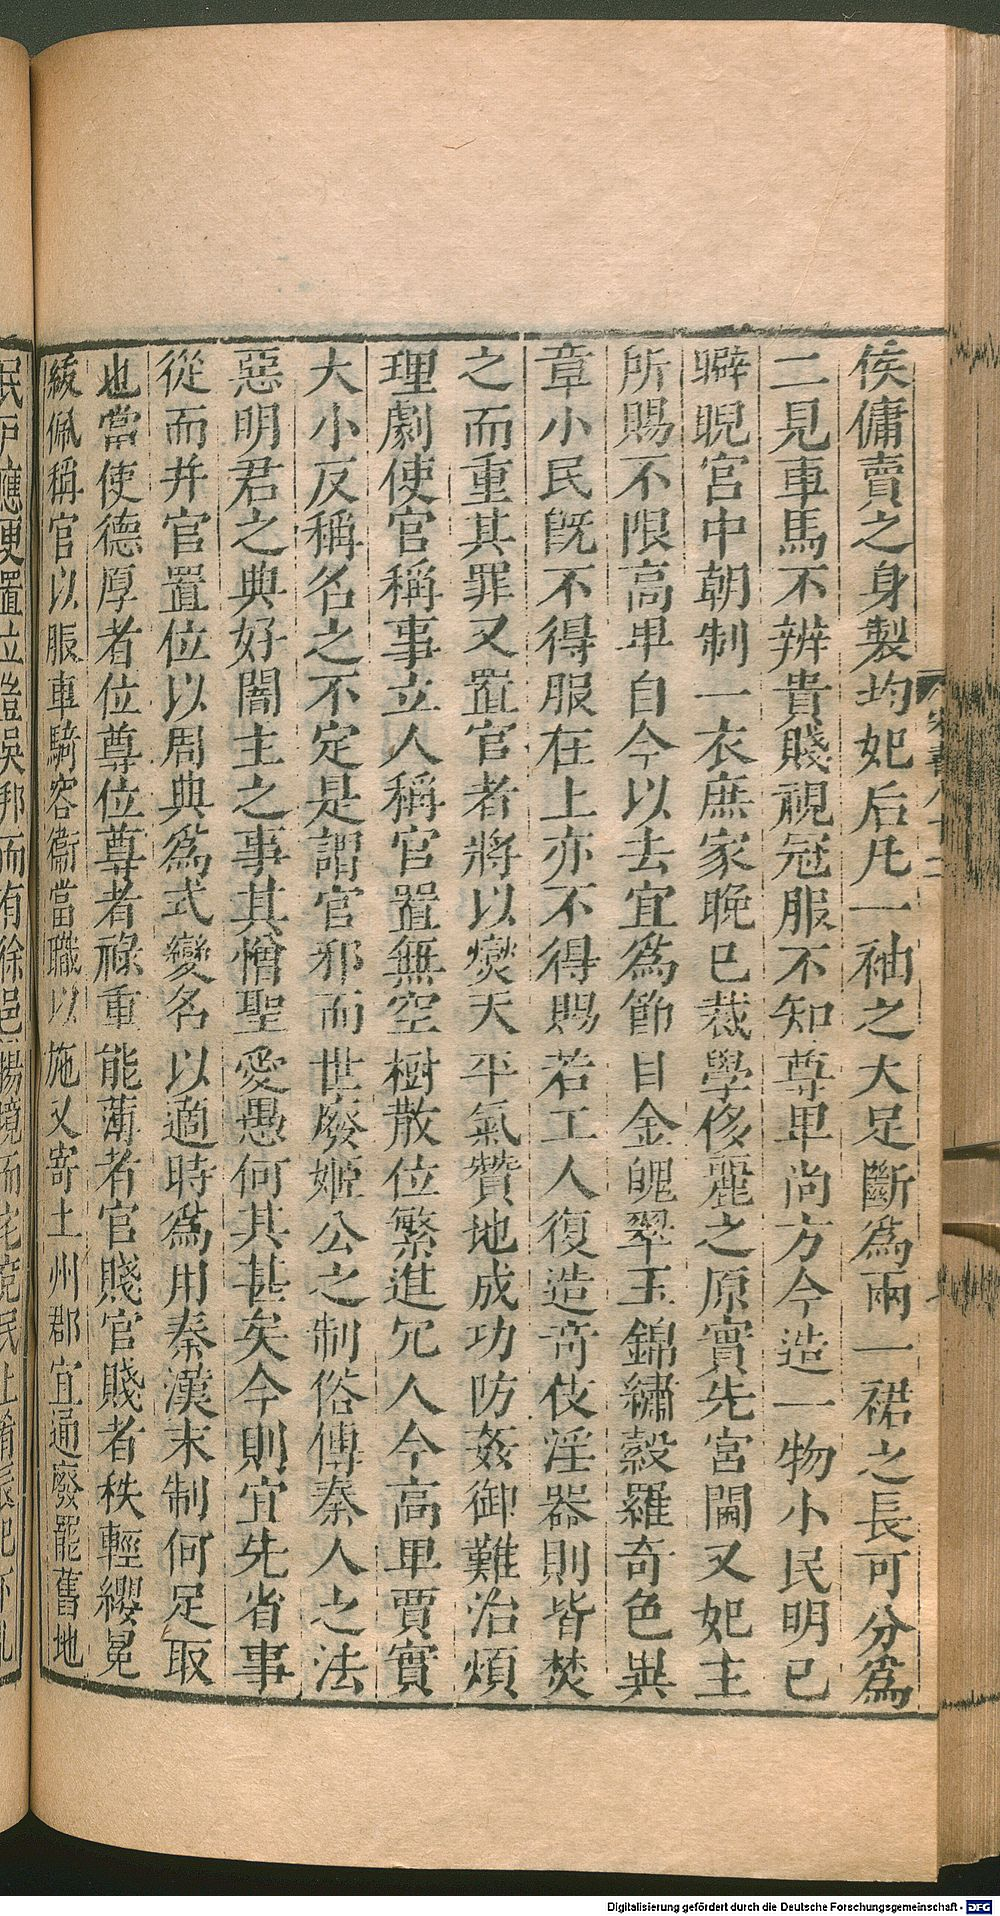 侯傭賣之身製均妃后凡一袖之大足斷為兩一裙之長可分為
二見車馬不辨貴賤視冠服不知尊卑尚方今造一物小民明已
睥睨宮中朝制一衣庶家晚已裁學侈麗之原實先宮閫又妃主
所賜不限高卑自今以去宜為節目金魄翠玉錦繡縠羅奇色異
章小民既不得服在上亦不得賜若工人復造奇伎淫器則皆焚
之而重其罪又置官者將以燮天平氣贊地成功防姦御難治煩
理劇使官稱事立人稱官置無空樹散位繁進冗人今高卑賈實
大小反稱名之不定是謂官邪而世廢姬公之制俗傳秦人之法
惡明君之典好闇主之事其憎聖愛愚何其甚矣今則宜先省事
從而并官置位以周典為式變名以適時為用秦漢末制何足取
也當使德厚者位尊位尊者祿重能薄者官賤官賤者秩輕纓冕
紱佩稱官以服車騎容衞當職以施又寄土州郡宜通廢罷舊地
民戶應更置立豈吳邦而有徐邑揚境而宅兗民上淆辰紀下亂
Digitalisierung gefördert durch die Deutsche Forschungsgemeinschaft - DFG